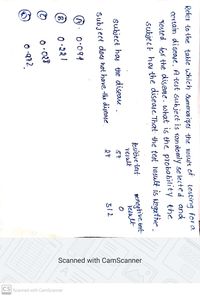 Refer to the table which summarizes the results of testing for a
certain disease. A test subject is randomly selected and
tested for the disease. what is the probability the
subject has the disease. That the test result is negative.
Positive test
result
negative test
result
subject has the disease.
57
0
subject does not have the disease
24
312
Ⓐ 0.094
Ⓑ 0.221
Ⓒ 0.028
Scanned with CamScanner
CS Scanned with CamScanner